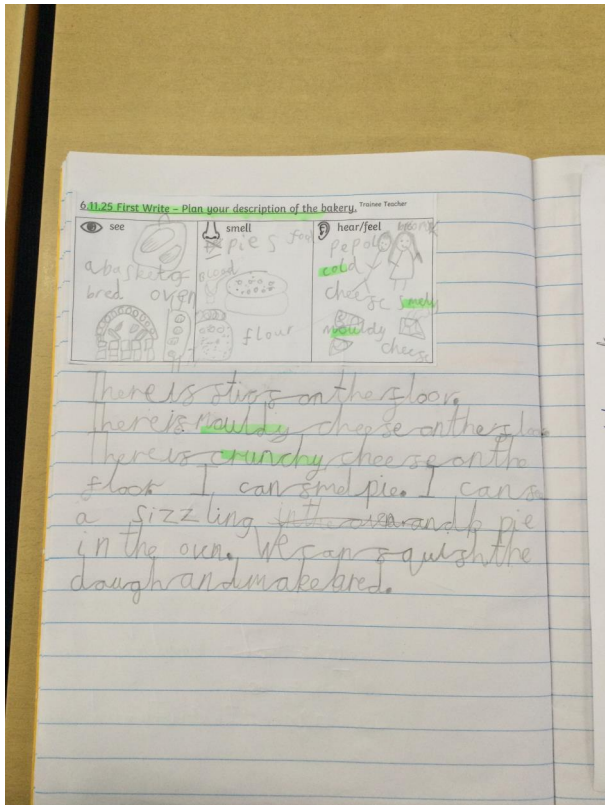 6.11.25 First Write – Plan your description of the bakery. Trainee Teacher
see
a basket of
bred oven
smell
pies
flour
hear/feel
pepol
cold
cheese smely
mouldy
cheese
There is on the floor.
There is mouldy cheese on the
There is crunchy cheese on the
floor I can smel pie. I can
a sizzling in the oven and pie
in the oven. We can squish the
dough and make bred.